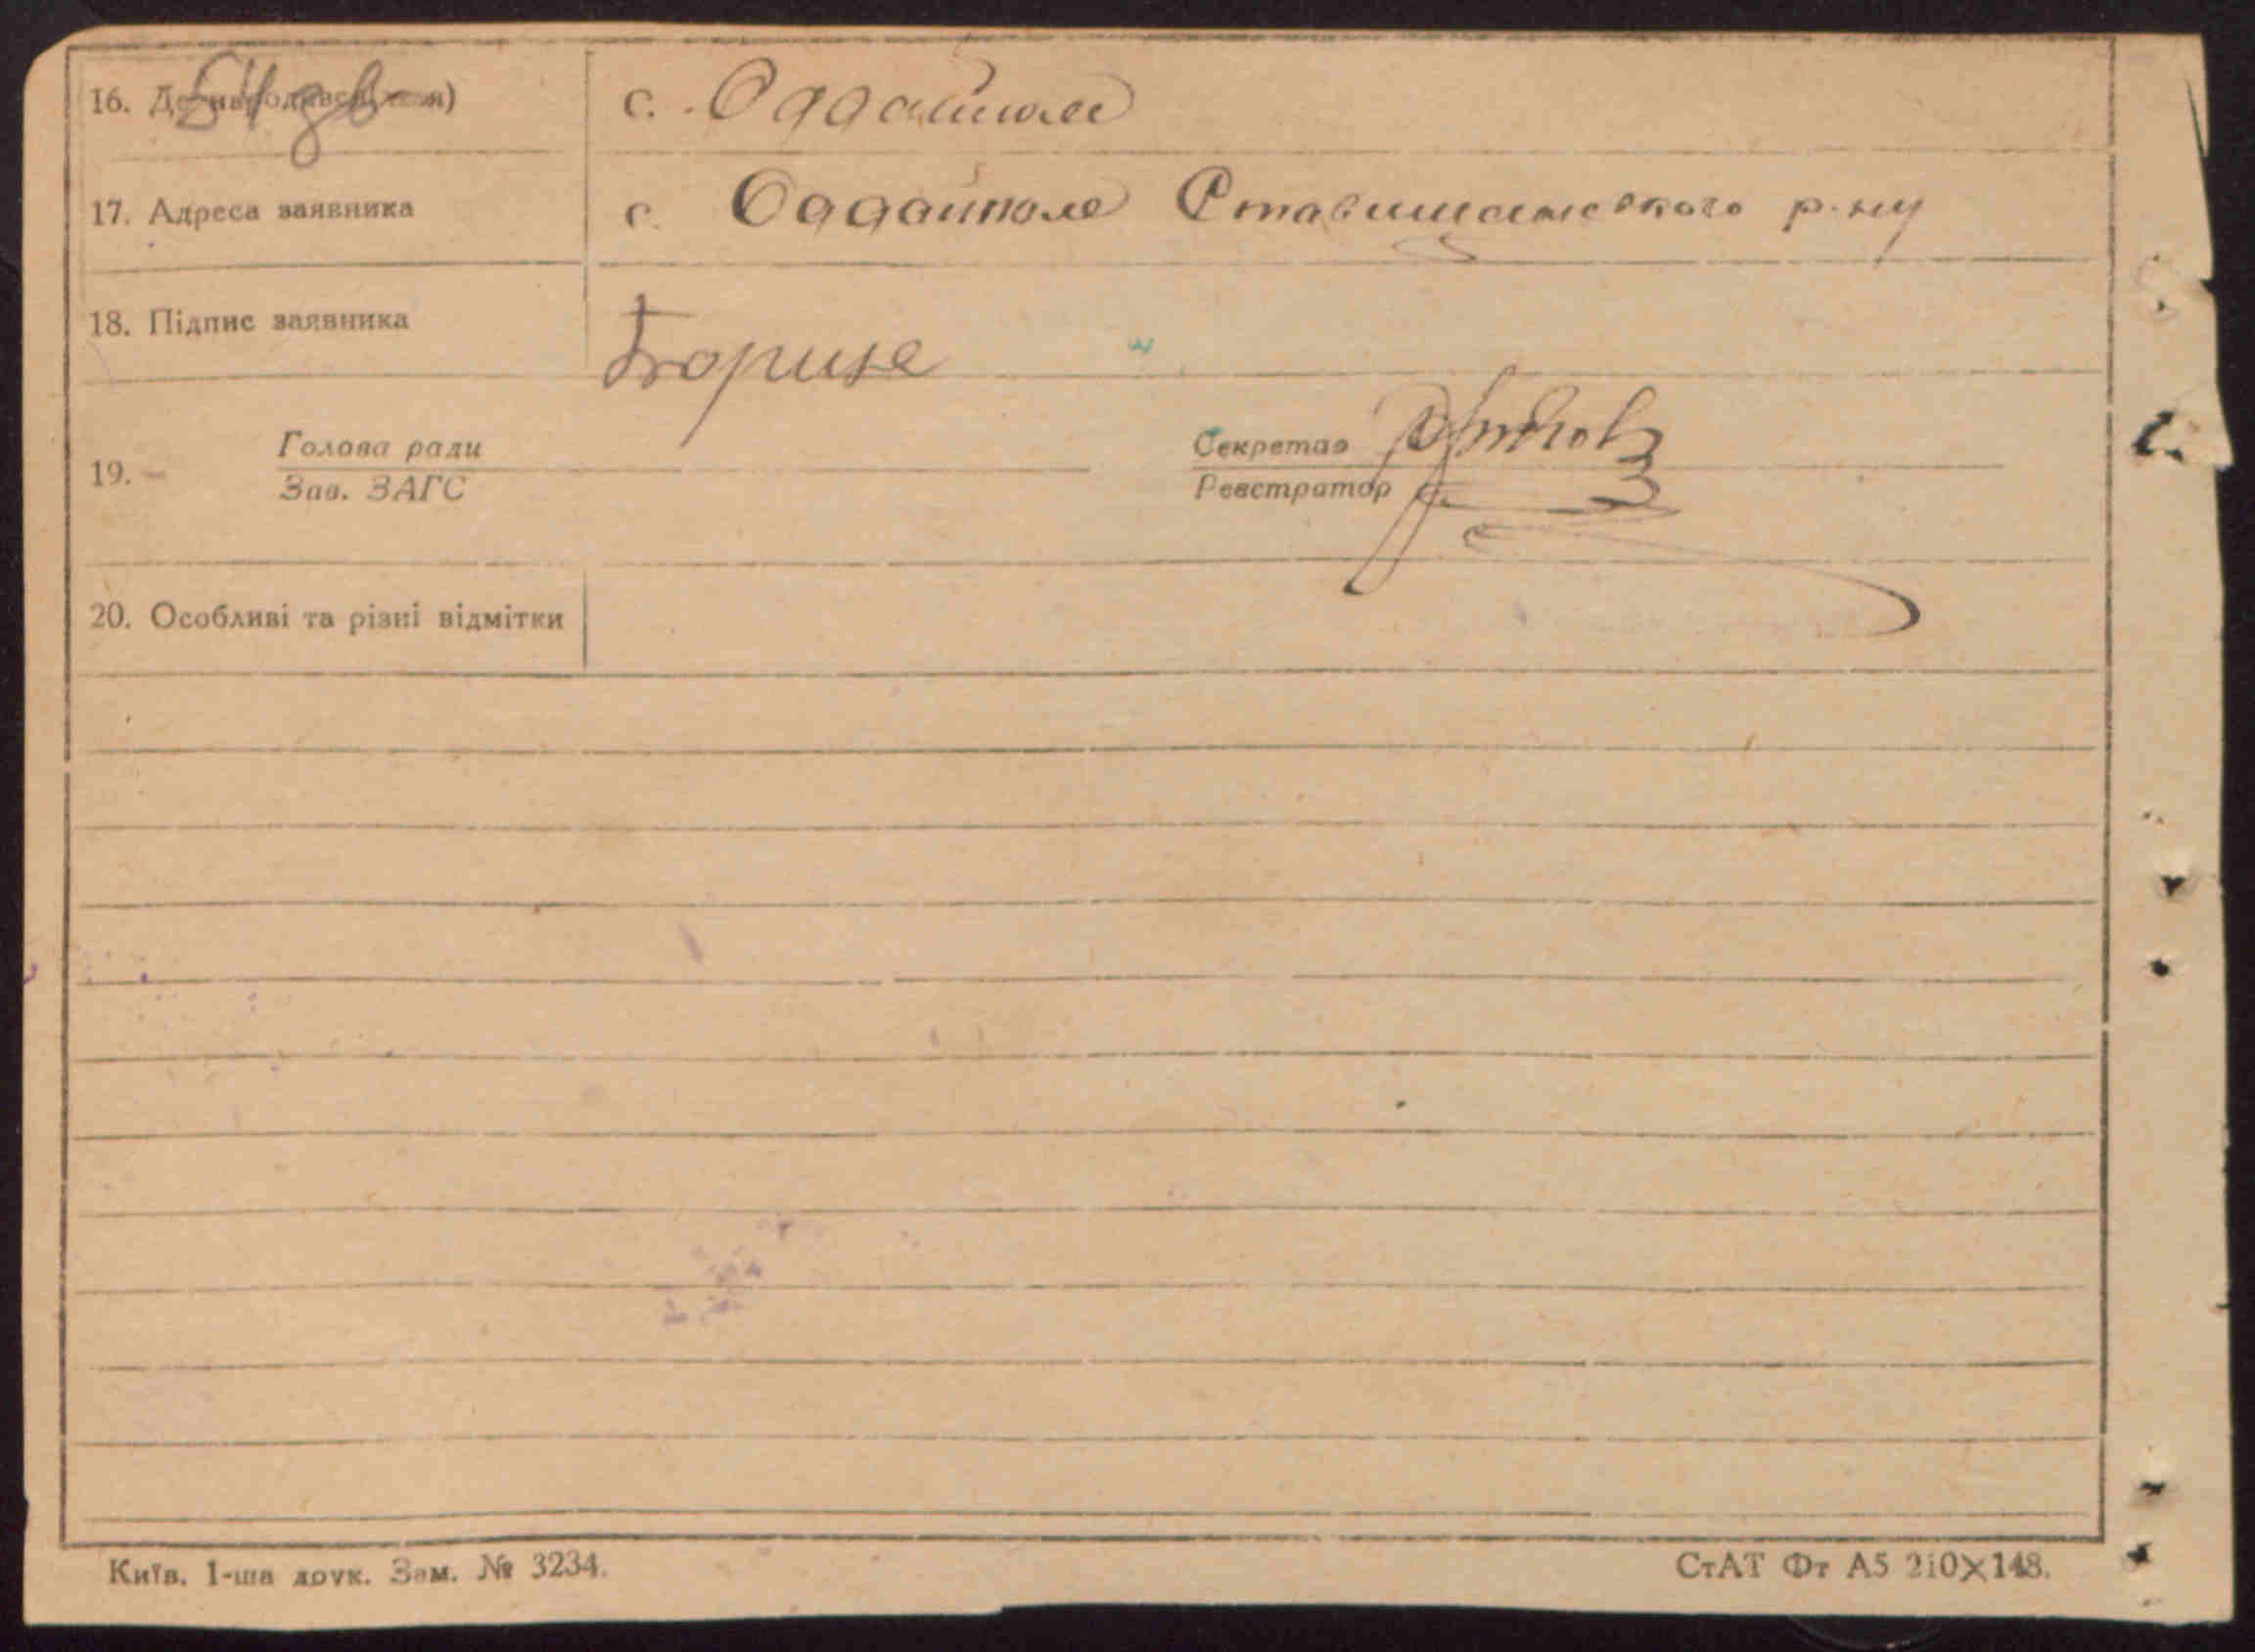 16. Де народився(лася) с. Оддайполе
54 зв
17. Адреса заявника с. Оддайполе Ставищанського р-ну
18. Підпис заявника
19. Голова ради Секретар
Зав. ЗАГС Реєстратор
20. Особливі та різні відмітки
Київ. 1-ша друк. Зам. № 3234.
СтАТ Фт А5 210×148.